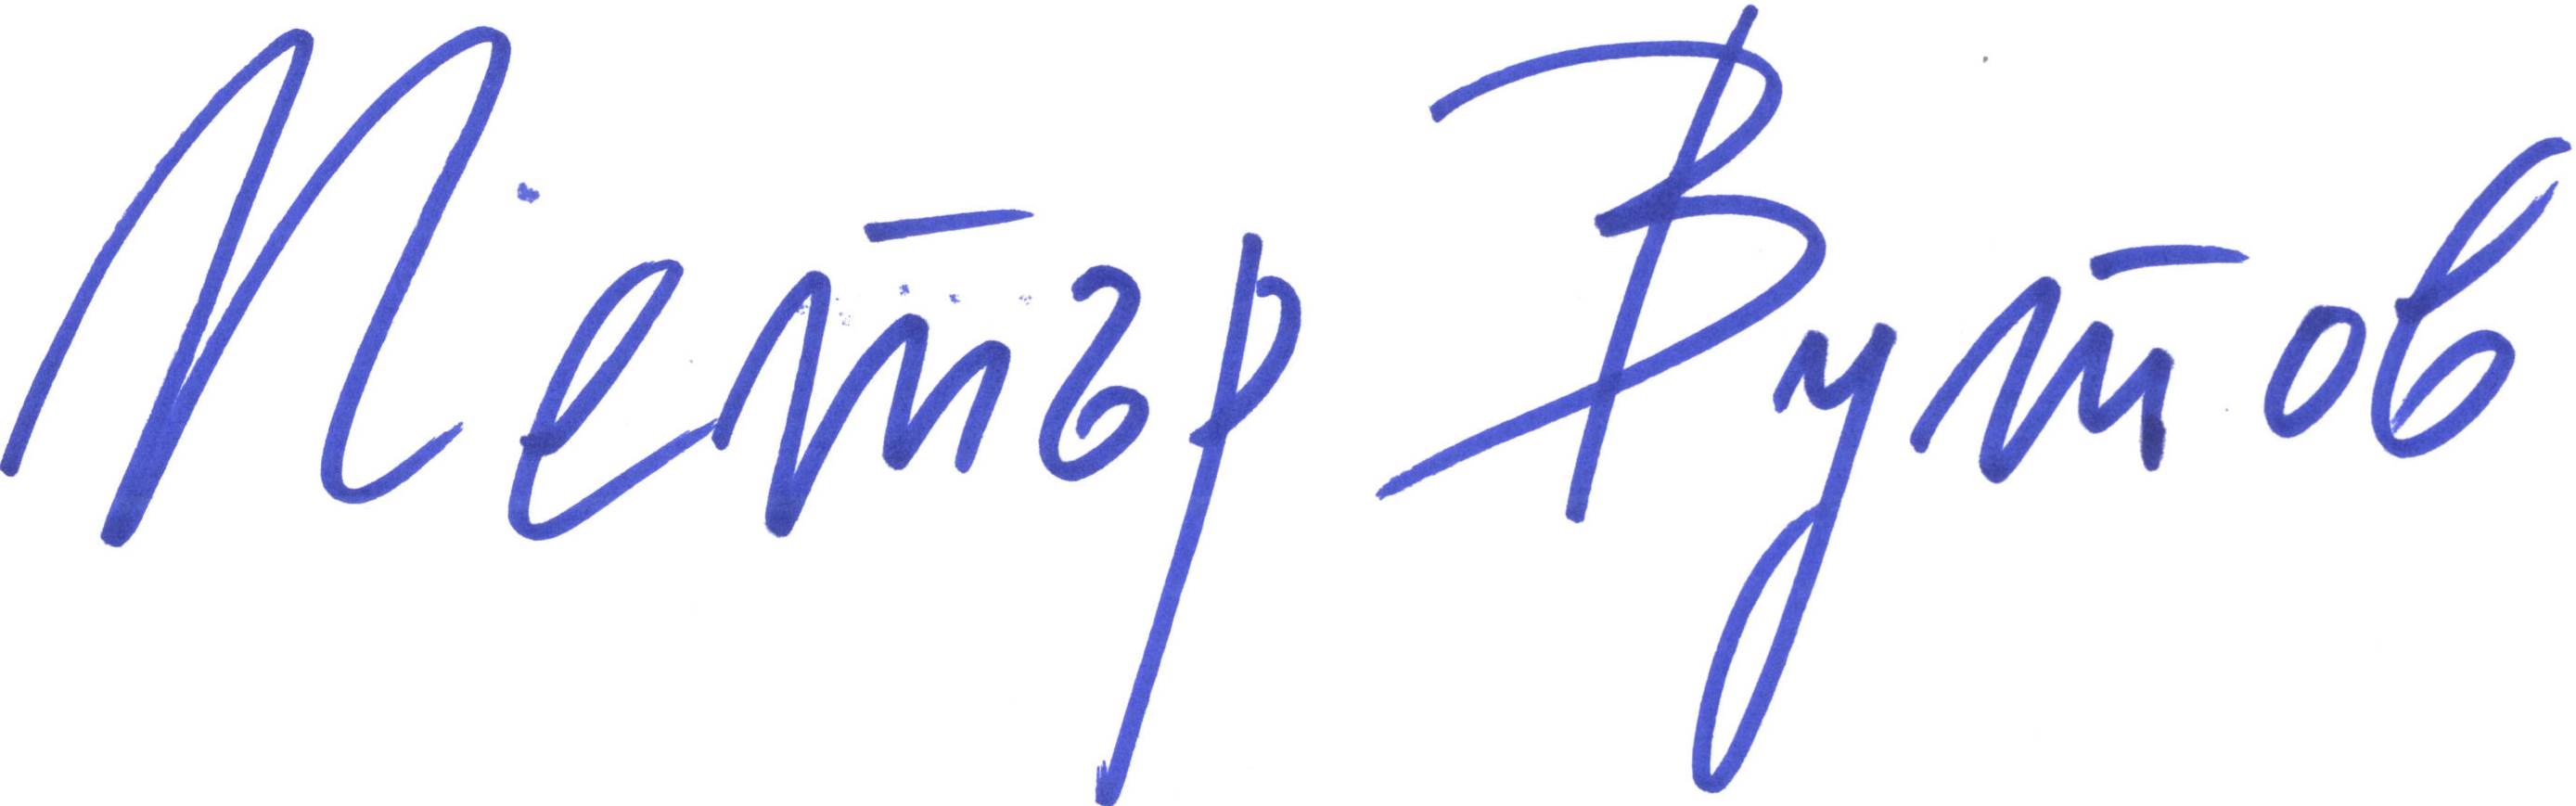 Петър Вутов